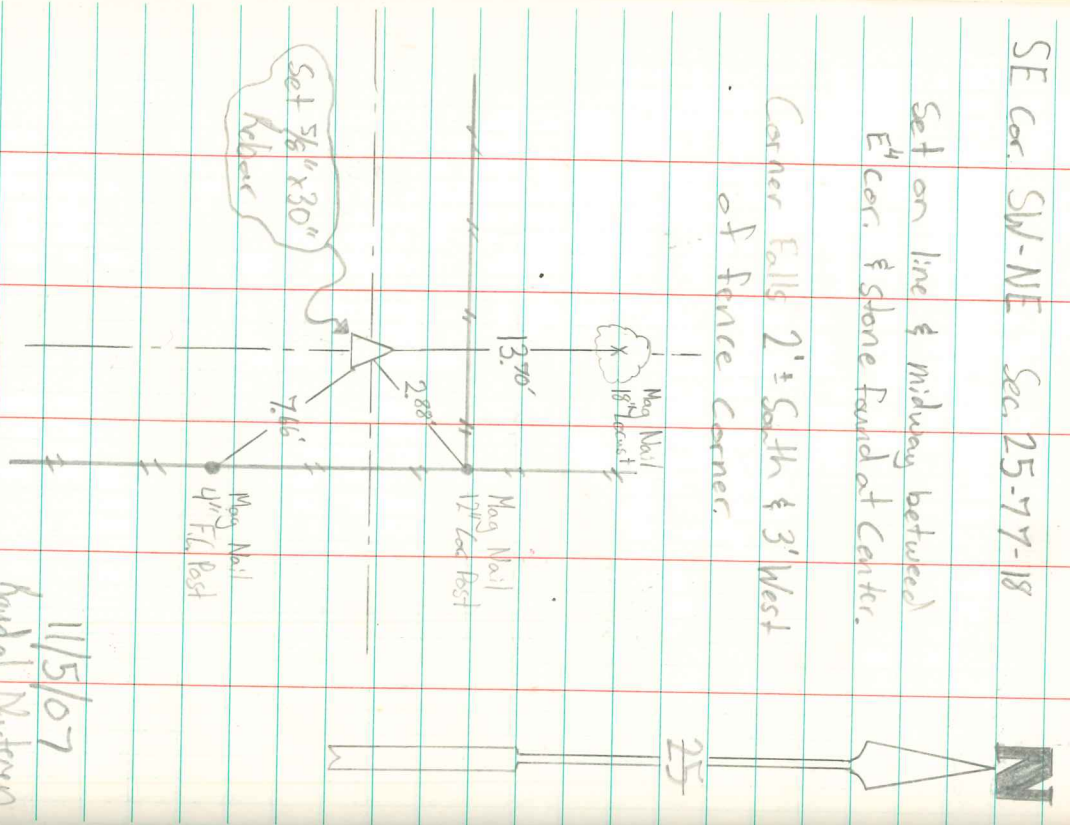 SE Cor. SW-NE Sec. 25-77-18
Set on line & midway between
E⁴ cor. & stone found at Center.
Corner Falls 2'± South & 3' West
of fence corner.
Mag Nail
18" Locust
13.70'
2.88'
Mag Nail
12" Cor Post
Set 5/8" x 30"
Rebar
7.66'
Mag Nail
4" F.L. Post
N
25
11/5/07